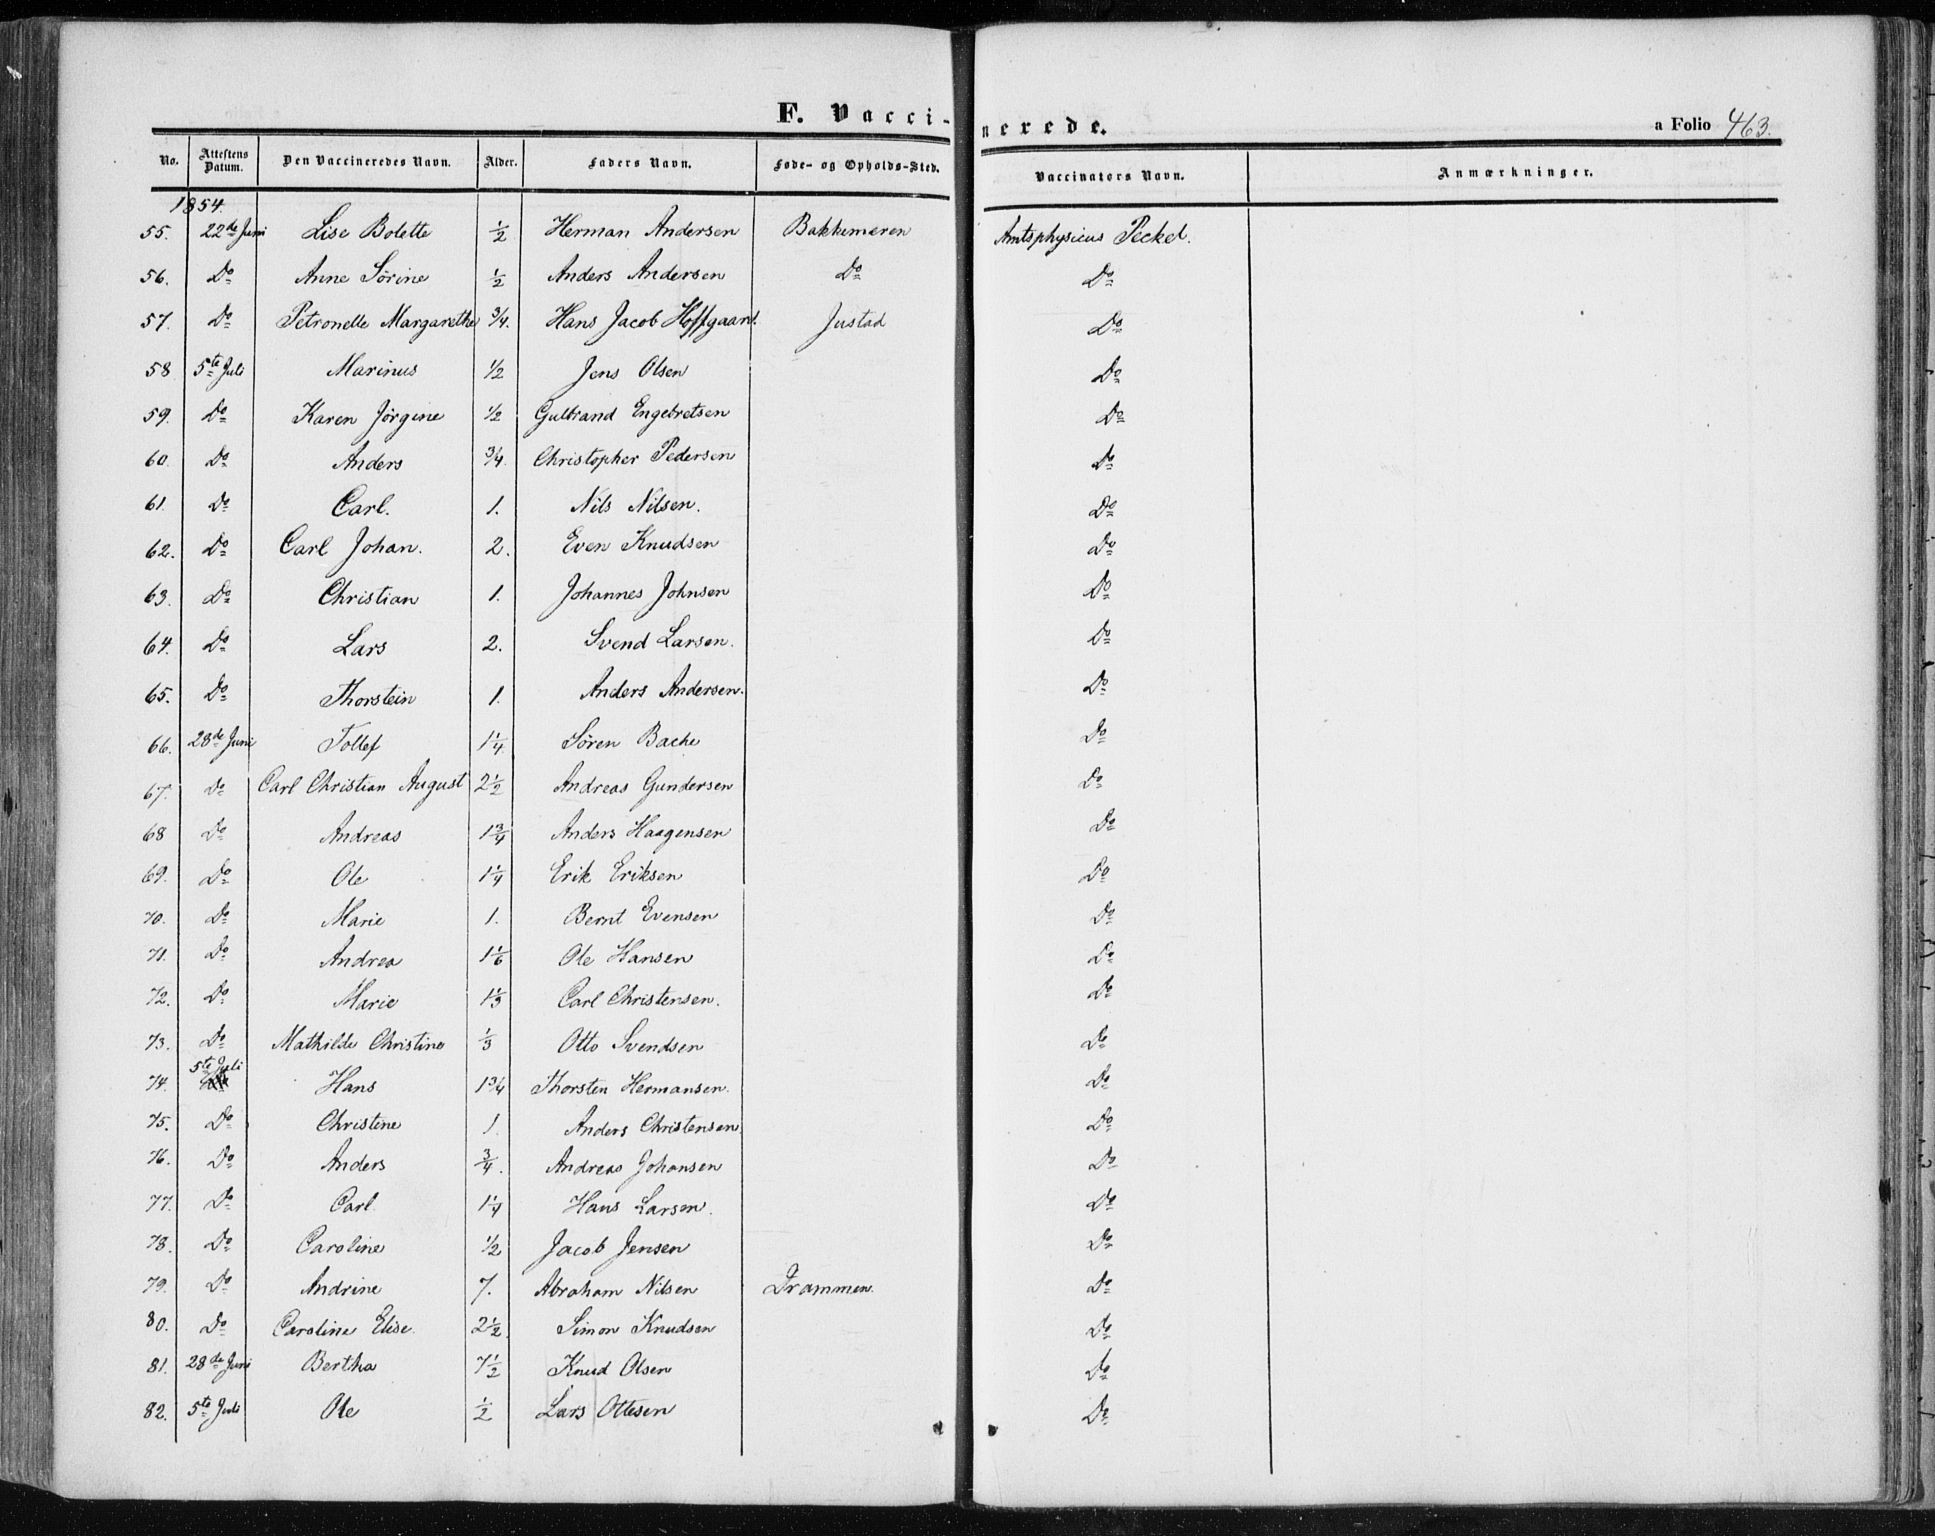 F. Vacci-nerede. a Folio 463.
No. Attestens Datum. Den Vaccineredes Navn. Alder. Faders Navn. Føde- og Opholds-Sted. Vaccinators Navn. Anmærkninger.
1854.
55. 22de Juni Lise Bolette 1/2 Herman Andersen Bakkemeren Amtsphysicus Peckel.
56. Do Anne Sørine 1/2 Anders Andersen Do Do
57. Do Petronelle Margarethe 3/4. Hans Jacob Hoffgaard. Justad Do
58 5te Juli Marinus 1/2 Jens Olsen Do
59. Do Karen Jørgine 1/2 Gulbrand Engebretsen Do
60. Do Anders 3/4. Christopher Pedersen Do
61. Do Carl. 1. Nils Nilsen. Do
62. Do Carl Johan. 2. Even Knudsen Do
63. Do Christian 1. Johannes Johnsen Do
64. Do Lars 2. Svend Larsen. Do
65. Do Thorstein 1. Anders Andersen. Do
66. 28de Juni Tollef 1 1/4 Søren Bache Do
67. Do Carl Christian August 2 1/2 Andreas Gundersen Do
68 Do Andreas 1 3/4 Anders Haagensen Do
69. Do Ole 1 1/4 Erik Eriksen Do
70. Do Marie 1. Bernt Evensen Do
71. Do Andrea 1 1/6 Ole Hansen Do
72. Do Marie 1 1/3 Carl Christensen. Do
73. Do Mathilde Christine 1/3 Otto Svendsen Do
74. 5te Juli Hans 1 3/4 Thorsten Hermansen. Do
75. Do Christine 1. Anders Christensen. Do
76. Do Anders 3/4. Andreas Johansen Do
77. Do Carl 1 1/4 Hans Larsen. Do
78. Do Caroline 1/2 Jacob Jensen Do
79. Do Andrine 7. Abraham Nilsen Drammen. Do
80. Do Caroline Elise. 2 1/2. Simon Knudsen Do
81. 28de Juni Bertha 7 1/2 Knud Olsen Do
82. 5te Juli Ole 1/2 Lars Ottesen Do